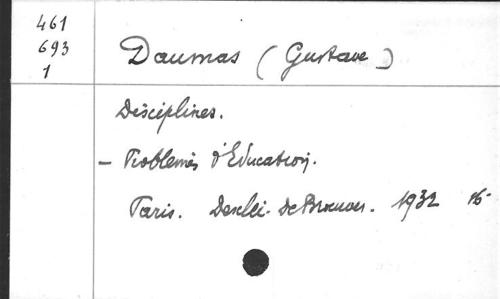 461
693
1
Daumas (Gustave)
Disciplines.
– Problèmes d'Education.
Paris. Desclée-de Brouwer. 1932 16-